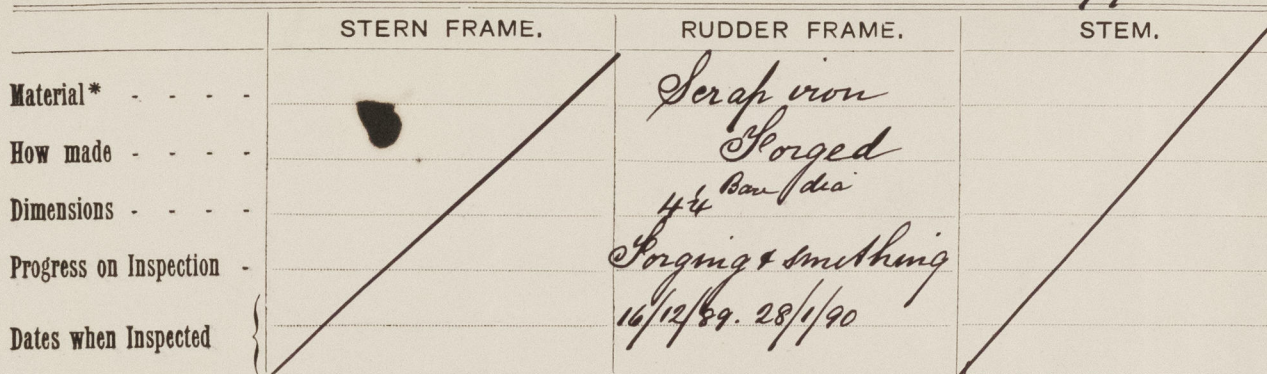 STERN FRAME. RUDDER FRAME. STEM.
Material* - - - - Scrap iron
How made - - - - Forged
Dimensions - - - - 4¼ Bare dia
Progress on Inspection - Forging & smithing
Dates when Inspected 16/12/89. 28/1/90